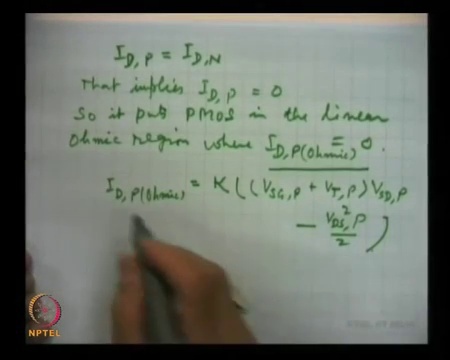 I_{D,P} = I_{D,N}
That implies I_{D,P} = 0
So it puts PMOS in the linear
ohmic region where I_{D,P(Ohmic)} = 0.
I_{D,P(Ohmic)} = K ((V_{SG,P} + V_{T,P}) V_{SD,P}
- V_{DS}^2,P / 2 )
NPTEL